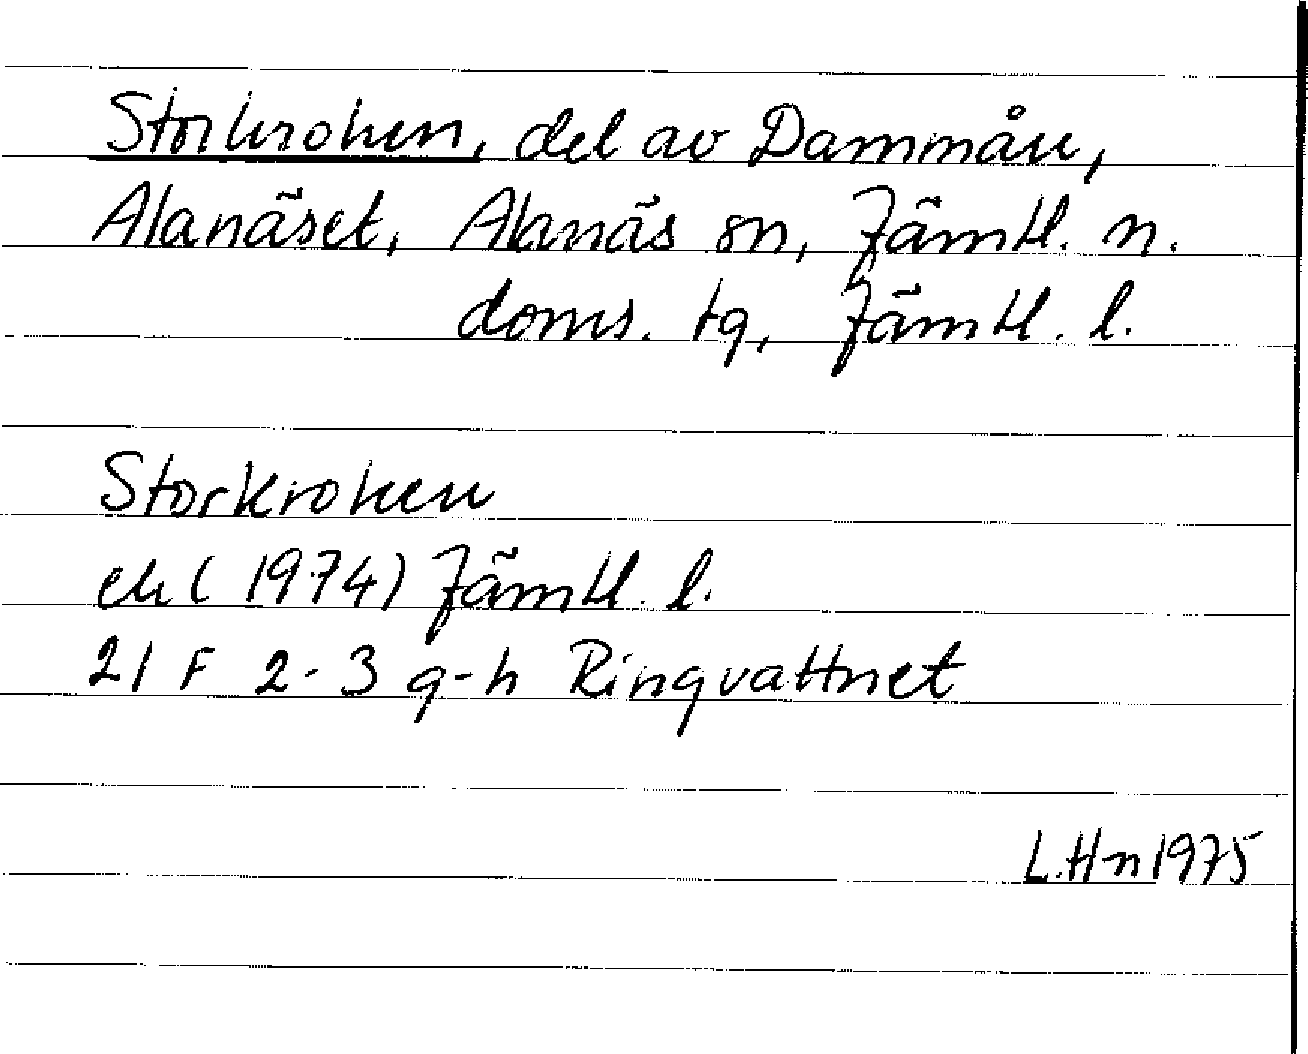 Storkroken, del av Dammån,
Alanäset, Alanäs sn, Jämtl. n.
doms. tg, Jämtl. l.
Storkroken
ek (1974) Jämtl. l.
21 F 2-3 g-h Ringvattnet
L.Hn 1975